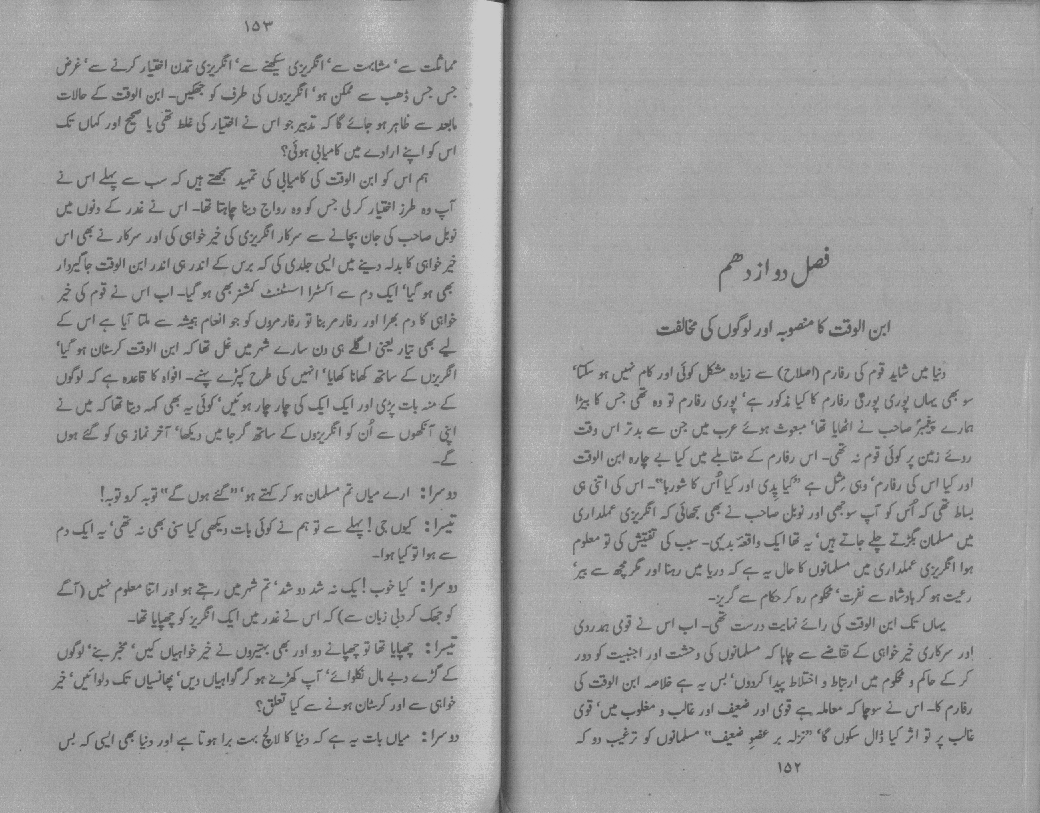 فصل دوازدھم
ابن الوقت کا منصوبہ اور لوگوں کی مخالفت
دنیا میں شاید قوم کی رفارم (اصلاح) سے زیادہ مشکل کوئی اور کام نہیں ہو سکتا،
سو بھی یہاں پوری پوری رفارم کا کیا مذکور ہے، پوری رفارم تو وہ تھی جس کا بیڑا
ہمارے پیغمبرؐ صاحب نے اٹھایا تھا، مبعوث ہوئے عرب میں جن سے بدتر اس وقت
روئے زمین پر کوئی قوم نہ تھی۔ اس رفارم کے مقابلے میں کیا بے چارہ ابن الوقت
اور کیا اس کی رفارم، وہی مثل ہے ”کیا پِدی اور کیا اُس کا شوربا“۔ اس کی اتنی ہی
بساط تھی کہ اُس کو آپ سوجھی اور نوبل صاحب نے بھی سجھائی کہ انگریزی عملداری
میں مسلمان بگڑتے چلے جاتے ہیں، یہ تھا ایک واقعۂ بدیہی۔ سبب کی تفتیش کی تو معلوم
ہوا انگریزی عملداری میں مسلمانوں کا حال یہ ہے کہ دریا میں رہنا اور مگرمچھ سے بیر،
رعیت ہو کر بادشاہ سے نفرت، محکوم رہ کر حکام سے گریز۔
یہاں تک ابن الوقت کی رائے نہایت درست تھی۔ اب اس نے قومی ہمدردی
اور سرکاری خیر خواہی کے تقاضے سے چاہا کہ مسلمانوں کی وحشت اور اجنبیت کو دور
کر کے حاکم و محکوم میں ارتباط و اختلاط پیدا کردوں، بس یہ ہے خلاصہ ابن الوقت کی
رفارم کا۔ اس نے سوچا کہ معاملہ ہے قوی اور ضعیف اور غالب و مغلوب میں، قوی
غالب پر تو اثر کیا ڈال سکوں گا، ”نزلہ بر عضوِ ضعیف“ مسلمانوں کو ترغیب دو کہ
۱۵۲
۱۵۳
مماثلت سے، مشابہت سے، انگریزی سیکھنے سے، انگریزی تمدن اختیار کرنے سے، غرض
جس جس ڈھب سے ممکن ہو، انگریزوں کی طرف کو جھکیں۔ ابن الوقت کے حالات
مابعد سے ظاہر ہو جائے گا کہ تدبیر جو اس نے اختیار کی غلط تھی یا صحیح اور کہاں تک
اس کو اپنے ارادے میں کامیابی ہوئی؟
ہم اس کو ابن الوقت کی کامیابی کی تمہید سمجھتے ہیں کہ سب سے پہلے اس نے
آپ وہ طرز اختیار کر لی جس کو وہ رواج دینا چاہتا تھا۔ اس نے غدر کے دنوں میں
نوبل صاحب کی جان بچانے سے سرکار انگریزی کی خیر خواہی کی اور سرکار نے بھی اس
خیر خواہی کا بدلہ دینے میں ایسی جلدی کی کہ برس کے اندر ہی اندر ابن الوقت جاگیردار
بھی ہو گیا، ایک دم سے اکسٹرا اسسٹنٹ کمشنر بھی ہو گیا۔ اب اس نے قوم کی خیر
خواہی کا دم بھرا اور رفارمر بنا تو رفارمروں کو جو انعام ہمیشہ سے ملتا آیا ہے اس کے
لیے بھی تیار یعنی اگلے ہی دن سارے شہر میں غل تھا کہ ابن الوقت کرسٹان ہو گیا،
انگریزوں کے ساتھ کھانا کھایا، انہیں کی طرح کپڑے پہنے۔ افواہ کا قاعدہ ہے کہ لوگوں
کے منہ بات پڑی اور ایک ایک کی چار چار ہوئیں، کوئی یہ بھی کہہ دیتا تھا کہ میں نے
اپنی آنکھوں سے اُن کو انگریزوں کے ساتھ گرجا میں دیکھا، آخر نماز ہی کو گئے ہوں
گے۔
دوسرا: ارے میاں تم مسلمان ہو کر کہتے ہو، ”گئے ہوں گے“ توبہ کرو توبہ!
تیسرا: کیوں جی! پہلے سے تو ہم نے کوئی بات دیکھی کیا سنی بھی نہ تھی، یہ ایک دم
سے ہوا تو کیا ہوا۔
دوسرا: کیا خوب! یک نہ شد دو شد، تم شہر میں رہتے ہو اور اتنا معلوم نہیں (آگے
کو جھک کر دبی زبان سے) کہ اس نے غدر میں ایک انگریز کو چھپایا تھا۔
تیسرا: چھپایا تھا تو چھپانے دو اور بھی بہتیروں نے خیر خواہیاں کیں، مخبر بنے، لوگوں
کے گڑے دبے مال نکلوائے، آپ کھڑے ہو کر گواہیاں دیں، پھانسیاں تک دلوائیں، خیر
خواہی سے اور کرسٹان ہونے سے کیا تعلق؟
دوسرا: میاں بات یہ ہے کہ دنیا کا لالچ بہت برا ہوتا ہے اور دنیا بھی ایسی کہ بس